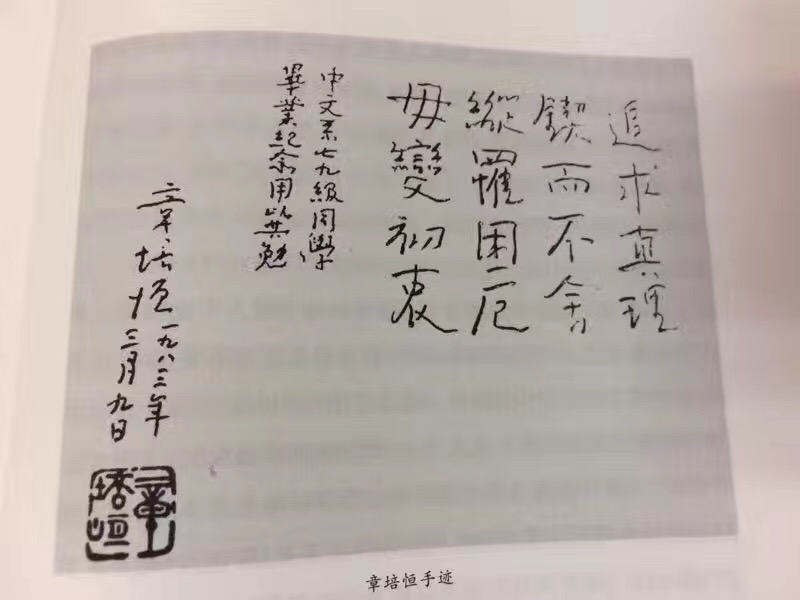 追求真理
鍥而不舍
縱罹困厄
毋變初衷
中文系七九級同學
畢業紀念用以共勉
章培恒
一九八三年
三月九日
章
培恒
章培恒手迹